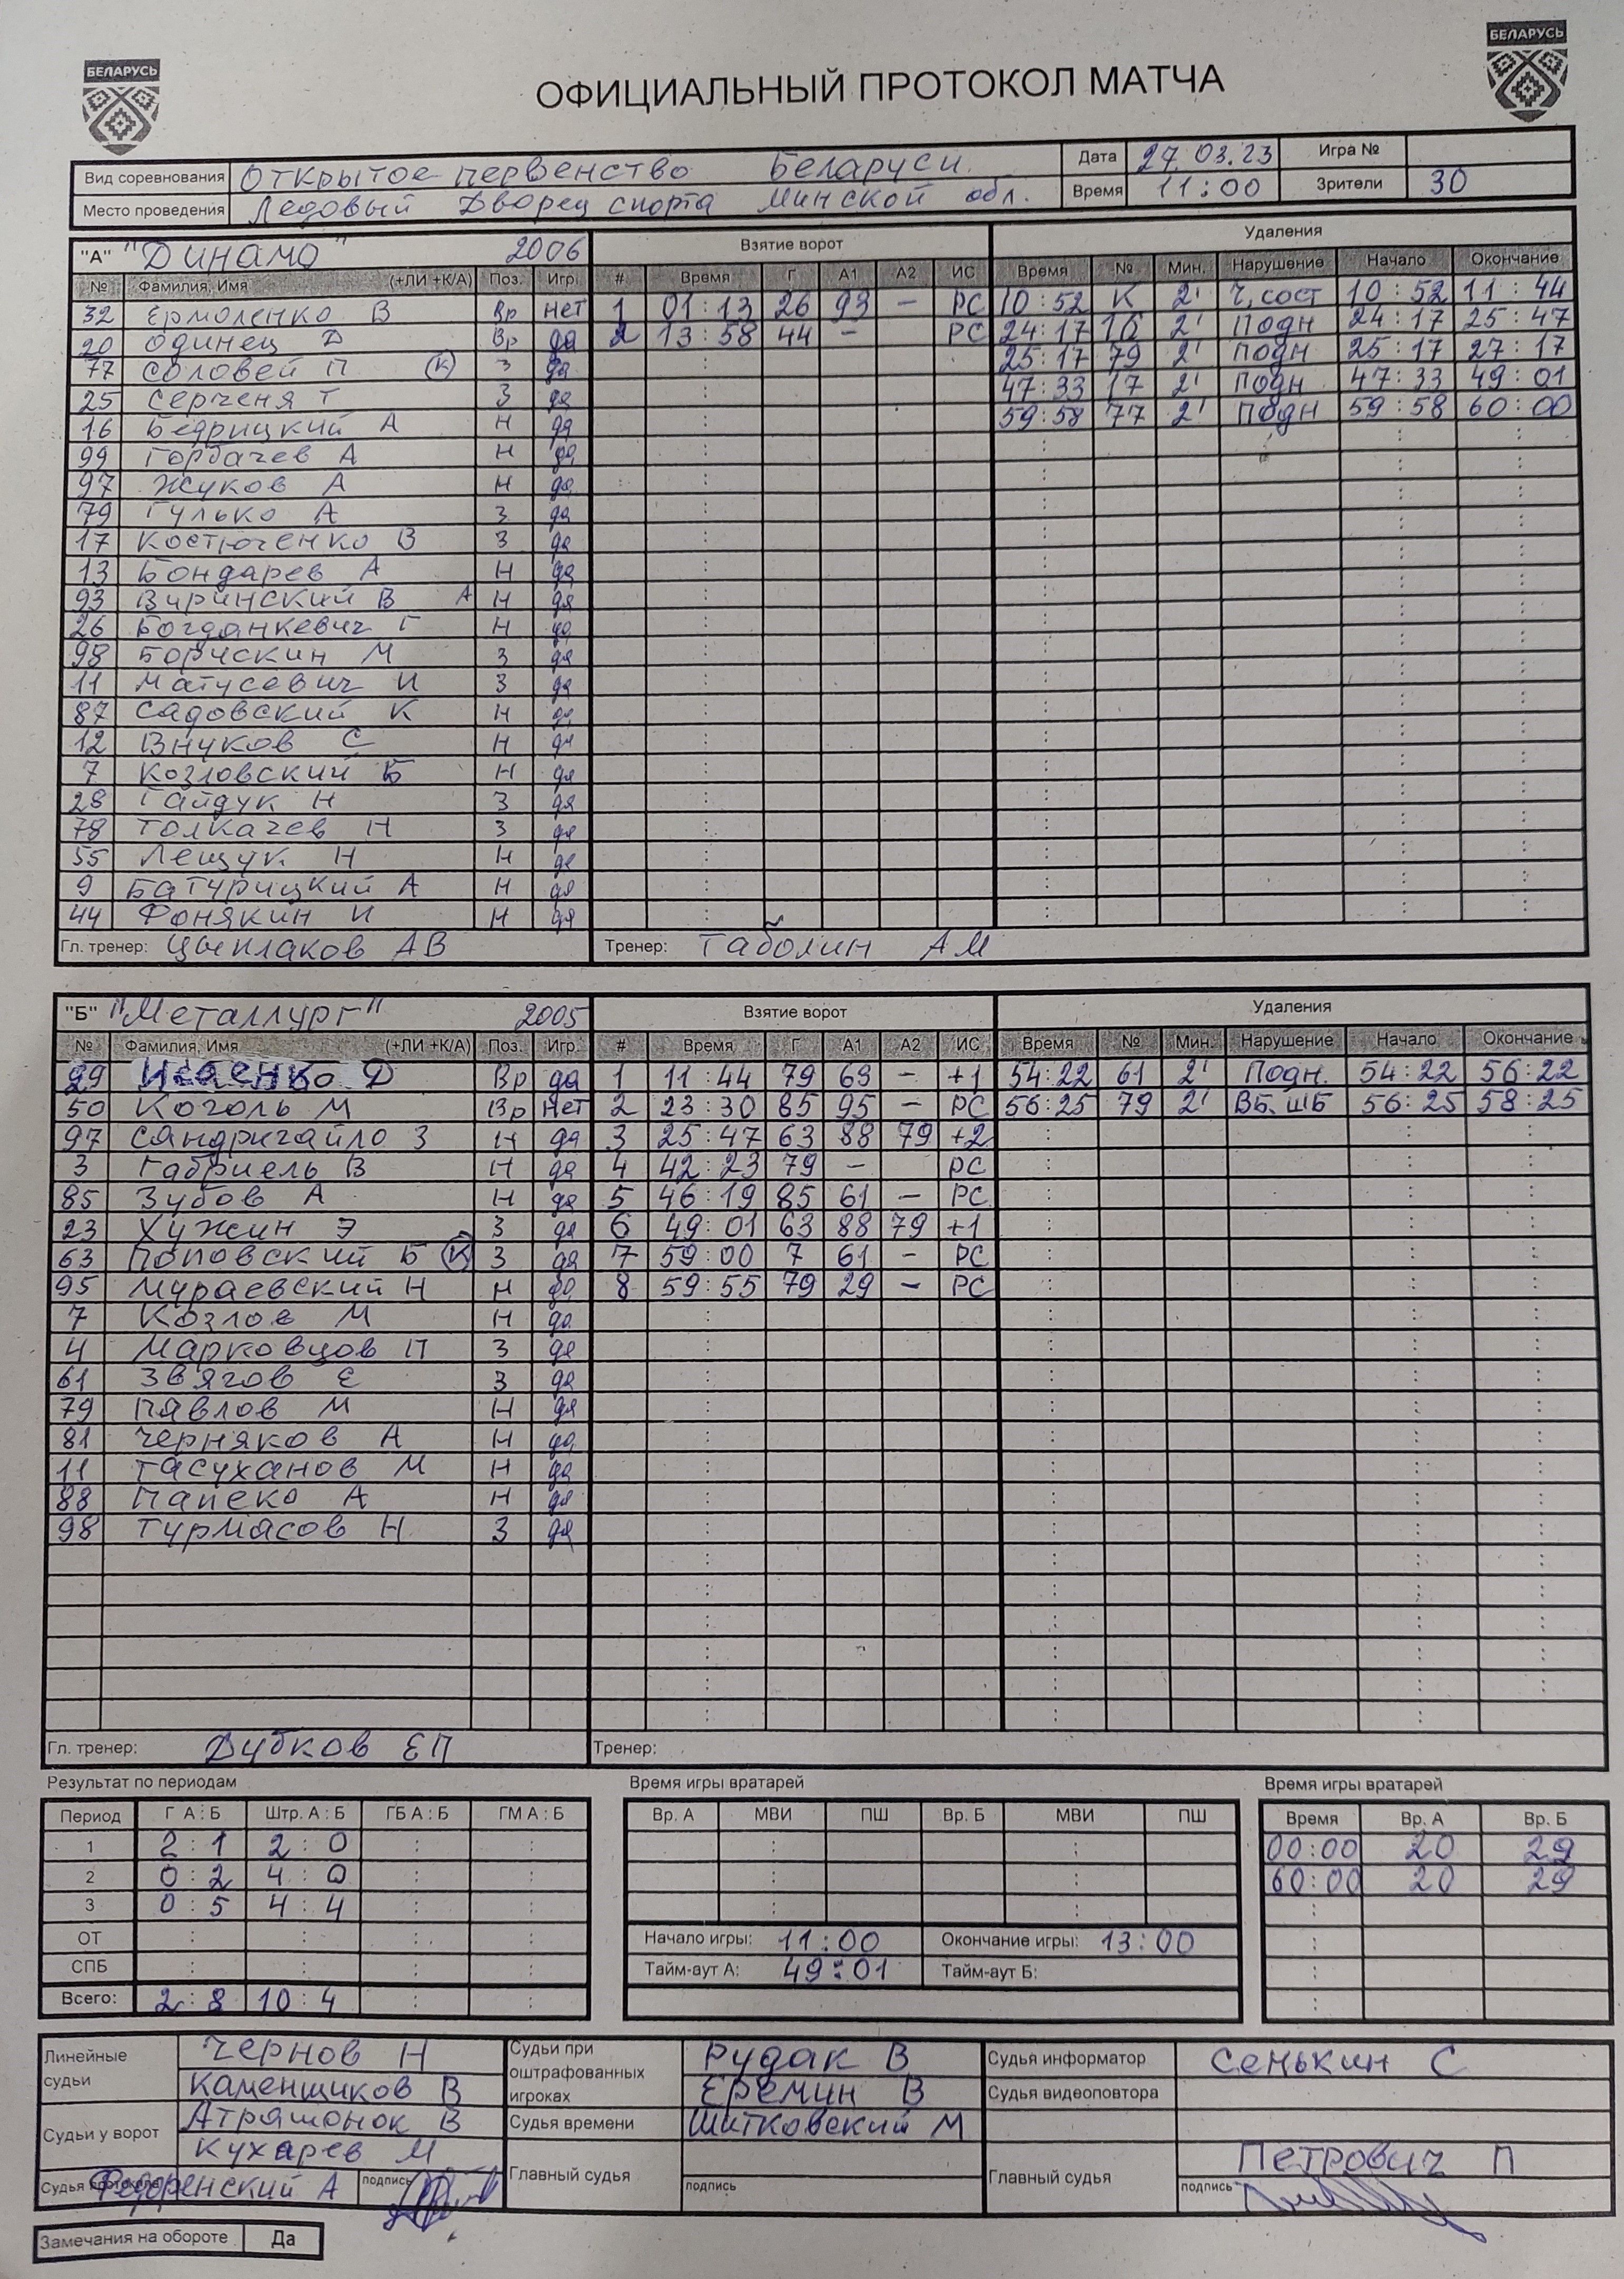 БЕЛАРУСЬ
БЕЛАРУСЬ
ОФИЦИАЛЬНЫЙ ПРОТОКОЛ МАТЧА
Вид соревнования Открытое первенство Беларуси. Дата 27.03.23 Игра №
Место проведения Ледовый Дворец спорта Минской обл. Время 11:00 Зрители 30
"А" "Динамо" 2006 Взятие ворот Удаления
№ Фамилия, Имя (+ЛИ +К/А) Поз. Игр. # Время Г А1 А2 ИС Время № Мин. Нарушение Начало Окончание
32 Ермоленко В Вр нет 1 01:13 26 93 – РС 10:52 К 2' Ч,сост 10:52 11:44
20 Одинец Д Вр да 2 13:58 44 – РС 24:17 16 2' Подн 24:17 25:47
77 Соловей П (К) З да 25:17 79 2' Подн 25:17 27:17
25 Серченя Т З да 47:33 17 2' Подн 47:33 49:01
16 Бедрицкий А Н да 59:58 77 2' Подн 59:58 60:00
99 Горбачев А Н да
97 Жуков А Н да
79 Гулько А З да
17 Костюченко В З да
13 Бондарев А Н да
93 Виринский В А Н да
26 Богданкевич Г Н да
98 Борискин М З да
11 Матусевич И З да
87 Садовский К Н да
12 Внуков С Н да
7 Козловский Б Н да
28 Гайдук Н З да
78 Толкачев Н З да
55 Лещук Н Н да
9 Батурицкий А Н да
44 Фонякин И Н да
Гл. тренер: Цыплаков АВ Тренер: Таболин АМ
"Б" "Металлург" 2005 Взятие ворот Удаления
№ Фамилия, Имя (+ЛИ +К/А) Поз. Игр. # Время Г А1 А2 ИС Время № Мин. Нарушение Начало Окончание
29 Исаенко Д Вр да 1 11:44 79 63 – +1 54:22 61 2' Подн. 54:22 56:22
50 Коголь М Вр Нет 2 23:30 85 95 – РС 56:25 79 2' ВБ.ШБ 56:25 58:25
97 Сандригайло З Н да 3 25:47 63 88 79 +2
3 Габриель В Н да 4 42:23 79 – РС
85 Зубов А Н да 5 46:19 85 61 – РС
23 Хужин Э З да 6 49:01 63 88 79 +1
63 Поповский Б (К) З да 7 59:00 7 61 – РС
95 Мураевский Н Н да 8 59:55 79 29 – РС
7 Козлов М Н да
4 Марковцов П З да
61 Звягов Е З да
79 Павлов М Н да
81 Черняков А Н да
11 Тасуханов М Н да
88 Папеко А Н да
98 Турмасов Н З да
Гл. тренер: Дубков ЕП Тренер:
Результат по периодам Время игры вратарей Время игры вратарей
Период Г А : Б Штр. А : Б ГБ А : Б ГМ А : Б Вр. А МВИ ПШ Вр. Б МВИ ПШ Время Вр. А Вр. Б
1 2:1 2:0 00:00 20 29
2 0:2 4:0 60:00 20 29
3 0:5 4:4
ОТ Начало игры: 11:00 Окончание игры: 13:00
СПБ Тайм-аут А: 49:01 Тайм-аут Б:
Всего: 2:8 10:4
Линейные судьи Чернов Н Судьи при оштрафованных игроках Рудак В Судья информатор Сенькин С
Каменщиков В Еремин В Судья видеоповтора
Судьи у ворот Атрашонок В Судья времени Шитковский М
Кухарев М Главный судья Главный судья Петрович П
Судья протокола Федоренский А подпись подпись подпись
Замечания на обороте Да